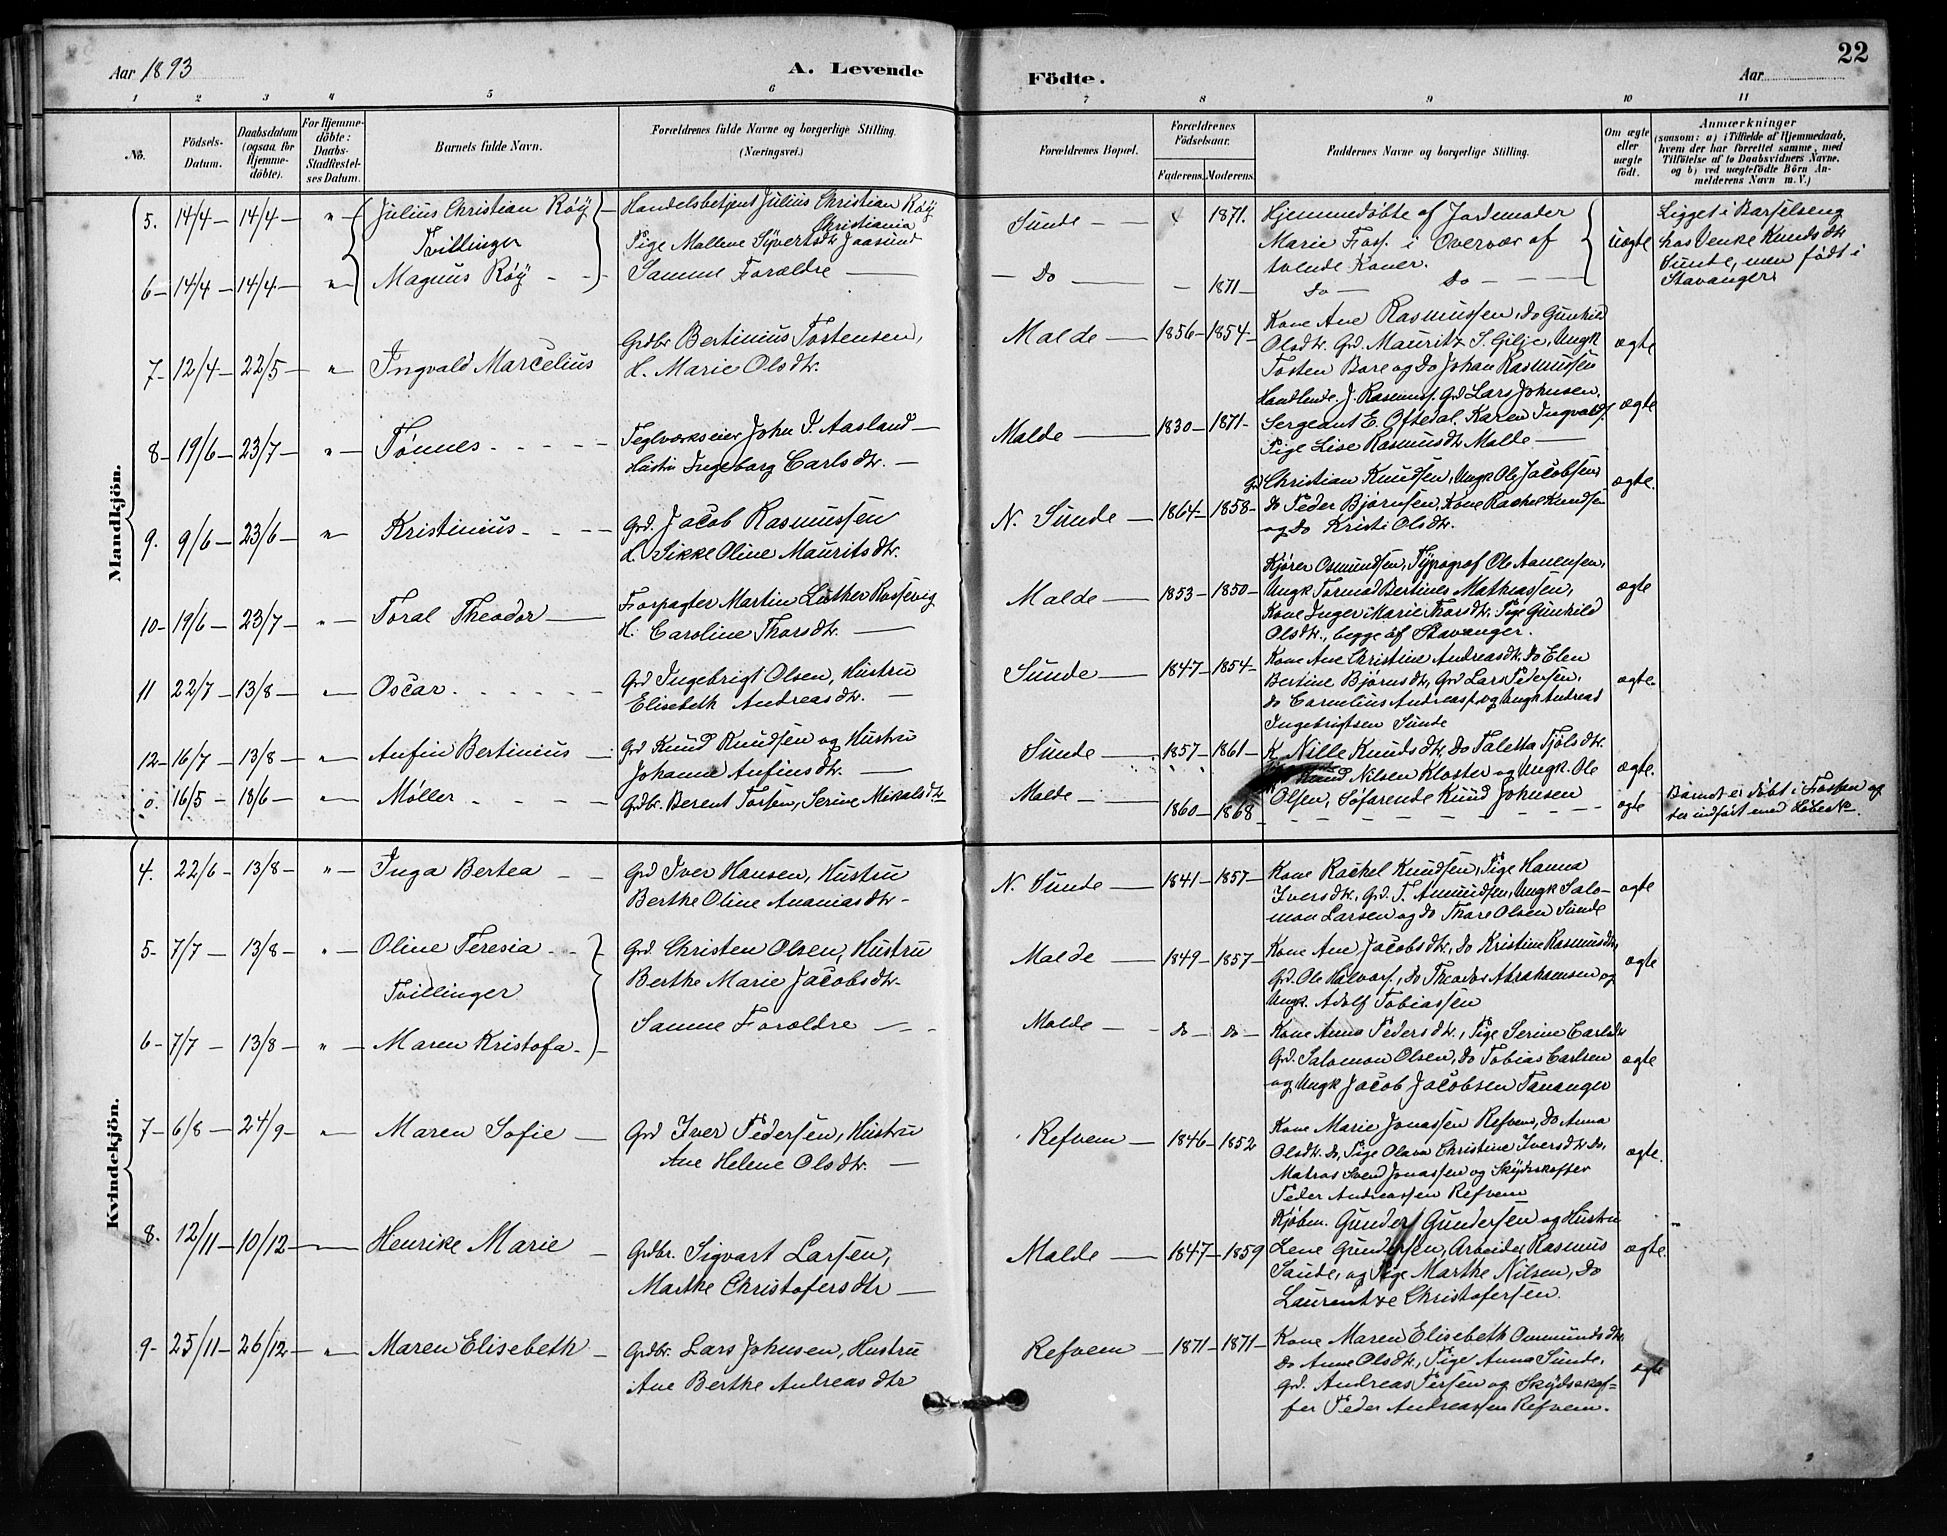 22
Aar 1893
A. Levende Födte.
Aar
1 2 3 4 5 6 7 8 9 10 11
No.
Födsels-Datum.
Daabsdatum (ogsaa for Hjemmedöbte).
For Hjemmedöbte: Daabs-Stadfæstelses Datum.
Barnets fulde Navn.
Forældrenes fulde Navne og borgerlige Stilling. (Næringsvei.)
Forældrenes Bopæl.
Forældrenes Födselsaar.
Faderens. Moderens.
Faddernes Navne og borgerlige Stilling.
Om ægte eller uægte födt.
Anmærkninger
(saasom: a) i Tilfælde af Hjemmedaab, hvem der har forrettet samme, med Tilföielse af to Daabsvidners Navne, og b) ved uægtefödte Börn Anmelderens Navn m. V.)
Mandkjön.
5. 14/4 14/4 " Julius Christian Röy
Tvillinger
Handelsbetjent Julius Christian Röy
Christiania
Pige Mallene Syvertsdtr Jaasund
Sunde 1871.
Hjemmedøbte af Jordemoder
Marie Foss. i Overvær af
tvende Koner.
uægte
Ligget i Barselseng
hos Venke Knudsdtr
Sunde, men født i
Stavanger.
6 14/4 14/4 " Magnus Röy
Samme Forældre
Do 1871
Do Do
7 12/4 22/5 " Ingvald Marcelius
Grdbr. Bertinius Tostensen,
H. Marie Olsdtr.
Malde 1856 1854
Kone Ane Rasmussen, Do Gunhild
Olsdtr. Grd. Mauritz S. Gilje, Ungk
Tosten Bore og Do Johan Rasmussen
ægte
8 19/6 23/7 " Tønnes
Teglværkseier John D. Aasland
Hustru Ingeborg Carlsdtr.
Malde 1830 1871
Handlende J. Rasmuss. Grd Lars Johnsen,
Sergeant E. Oftedal. Karen Ingvalds.
Pige Lise Rasmusdtr Malde
ægte
9. 9/6 23/6 " Kristinius
Grd. Jacob Rasmussen
H. Sikke Oline Mauritsdtr.
N. Sunde 1864 1858
Grd Christian Knudsen, Ungk Ole Jacobsen,
Do Peder Bjørnsen, Kone Rachel Knudsen
og Do Kristi Olsdtr.
ægte.
10 19/6 23/7 " Toral Theodor
Forpagter Martin Luther Rossevig
H. Caroline Thorsdtr.
Malde 1853 1850
Kjører Osmundsen, Typograf Ole Aanensen,
Ungk Tormod Bertines Mathiassen,
Kone Inger Marie Thorsdtr. Pige Gunhild
Olsdtr., begge af Stavanger.
ægte
11 22/7 13/8 " Oscar.
Grd Ingebrigt Olsen, Hustru
Elisebeth Andreasdtr.
Sunde 1847 1854
Kone Ane Christine Andreasdtr. Do Elen
Bertine Bjørnsdtr, Grd Lars Pedersen,
Do Cornelius Andreass. og Ungk Andreas
Ingebrigtsen Sunde
ægte
12 16/7 13/8 " Anfin Bertinius
Grd Knud Knudsen og Hustru
Johanna Anfinsdtr.
Sunde 1857 1861
K. Nille Knudsdtr. Do Taletta Tjølsdtr.
Knud Nilsen Kloster og Ungk. Ole
Olsen, Søfarende Knud Johnsen
ægte.
0. 16/5 18/6 " Møller
Grdbr. Berent Torsen, Serine Mikalsdtr
Malde 1860 1868
ægte
Barnet er døbt i Fossen og
der indført med Løbe No.
Kvindekjön.
4. 22/6 13/8 " Inga Bertea
Grd Iver Hansen, Hustru
Berthe Oline Ananiasdtr
N. Sunde 1841 1857
Kone Rachel Knudsen, Pige Hanna
Iversdtr., Grd. T. Amundsen, Ungk Salo-
mon Larsen og Do Thore Olsen Sunde
ægte
5 7/7 13/8 " Oline Teresia
Tvillinger
Grd. Christen Olsen, Hustru
Berthe Marie Jacobsdtr.
Malde 1849 1857
Kone Ane Jacobsdtr, Do Kristine Rasmusdtr,
Grd. Ole Halvors., Do Theodor Abrahamsen og
Ungk. Adolf Tobiassen
ægte
6 7/7 13/8 " Maren Kristofa
Samme Forældre
Malde Do Do
Kone Anna Pedersdtr., Pige Serine Carlsdtr
Grd. Salomon Olsen, Do Tobias Carlsen
og Ungk Jacob Jacobsen Tananger
ægte
7 6/8 24/9 " Maren Sofie
Grd Iver Pedersen, Hustru
Ane Helene Olsdtr.
Refvem 1846 1852
Kone Marie Jonassen Refvem, Do Anna
Olsdtr. Do, Pige Olava Christine Iversdtr Do,
Matros Svend Jonassen og Skydsskaffer
Peder Andreassen Refvem
ægte.
8. 12/11 10/12 Henrike Marie
Grdbr. Sigvart Larsen,
Marthe Christofersdtr
Malde 1847 1859
Kjøbm. Gunder Gundersen og Hustru
Lene Gundersen, Arbeider Rasmus
Saude, og Pige Marthe Nilsen, Do
Laurentze Christofersen.
ægte.
9 25/11 26/12 " Maren Elisebeth
Grdbr. Lars Johnsen, Hustru
Ane Berthe Andreasdtr
Refvem 1871 1871
Kone Maren Elisebeth Ommundsdtr
Do Anne Olsdtr, Pige Anna Sunde,
Grd. Andreas Persen og Skydsskaf-
fer Peder Andreassen Refvem.
ægte